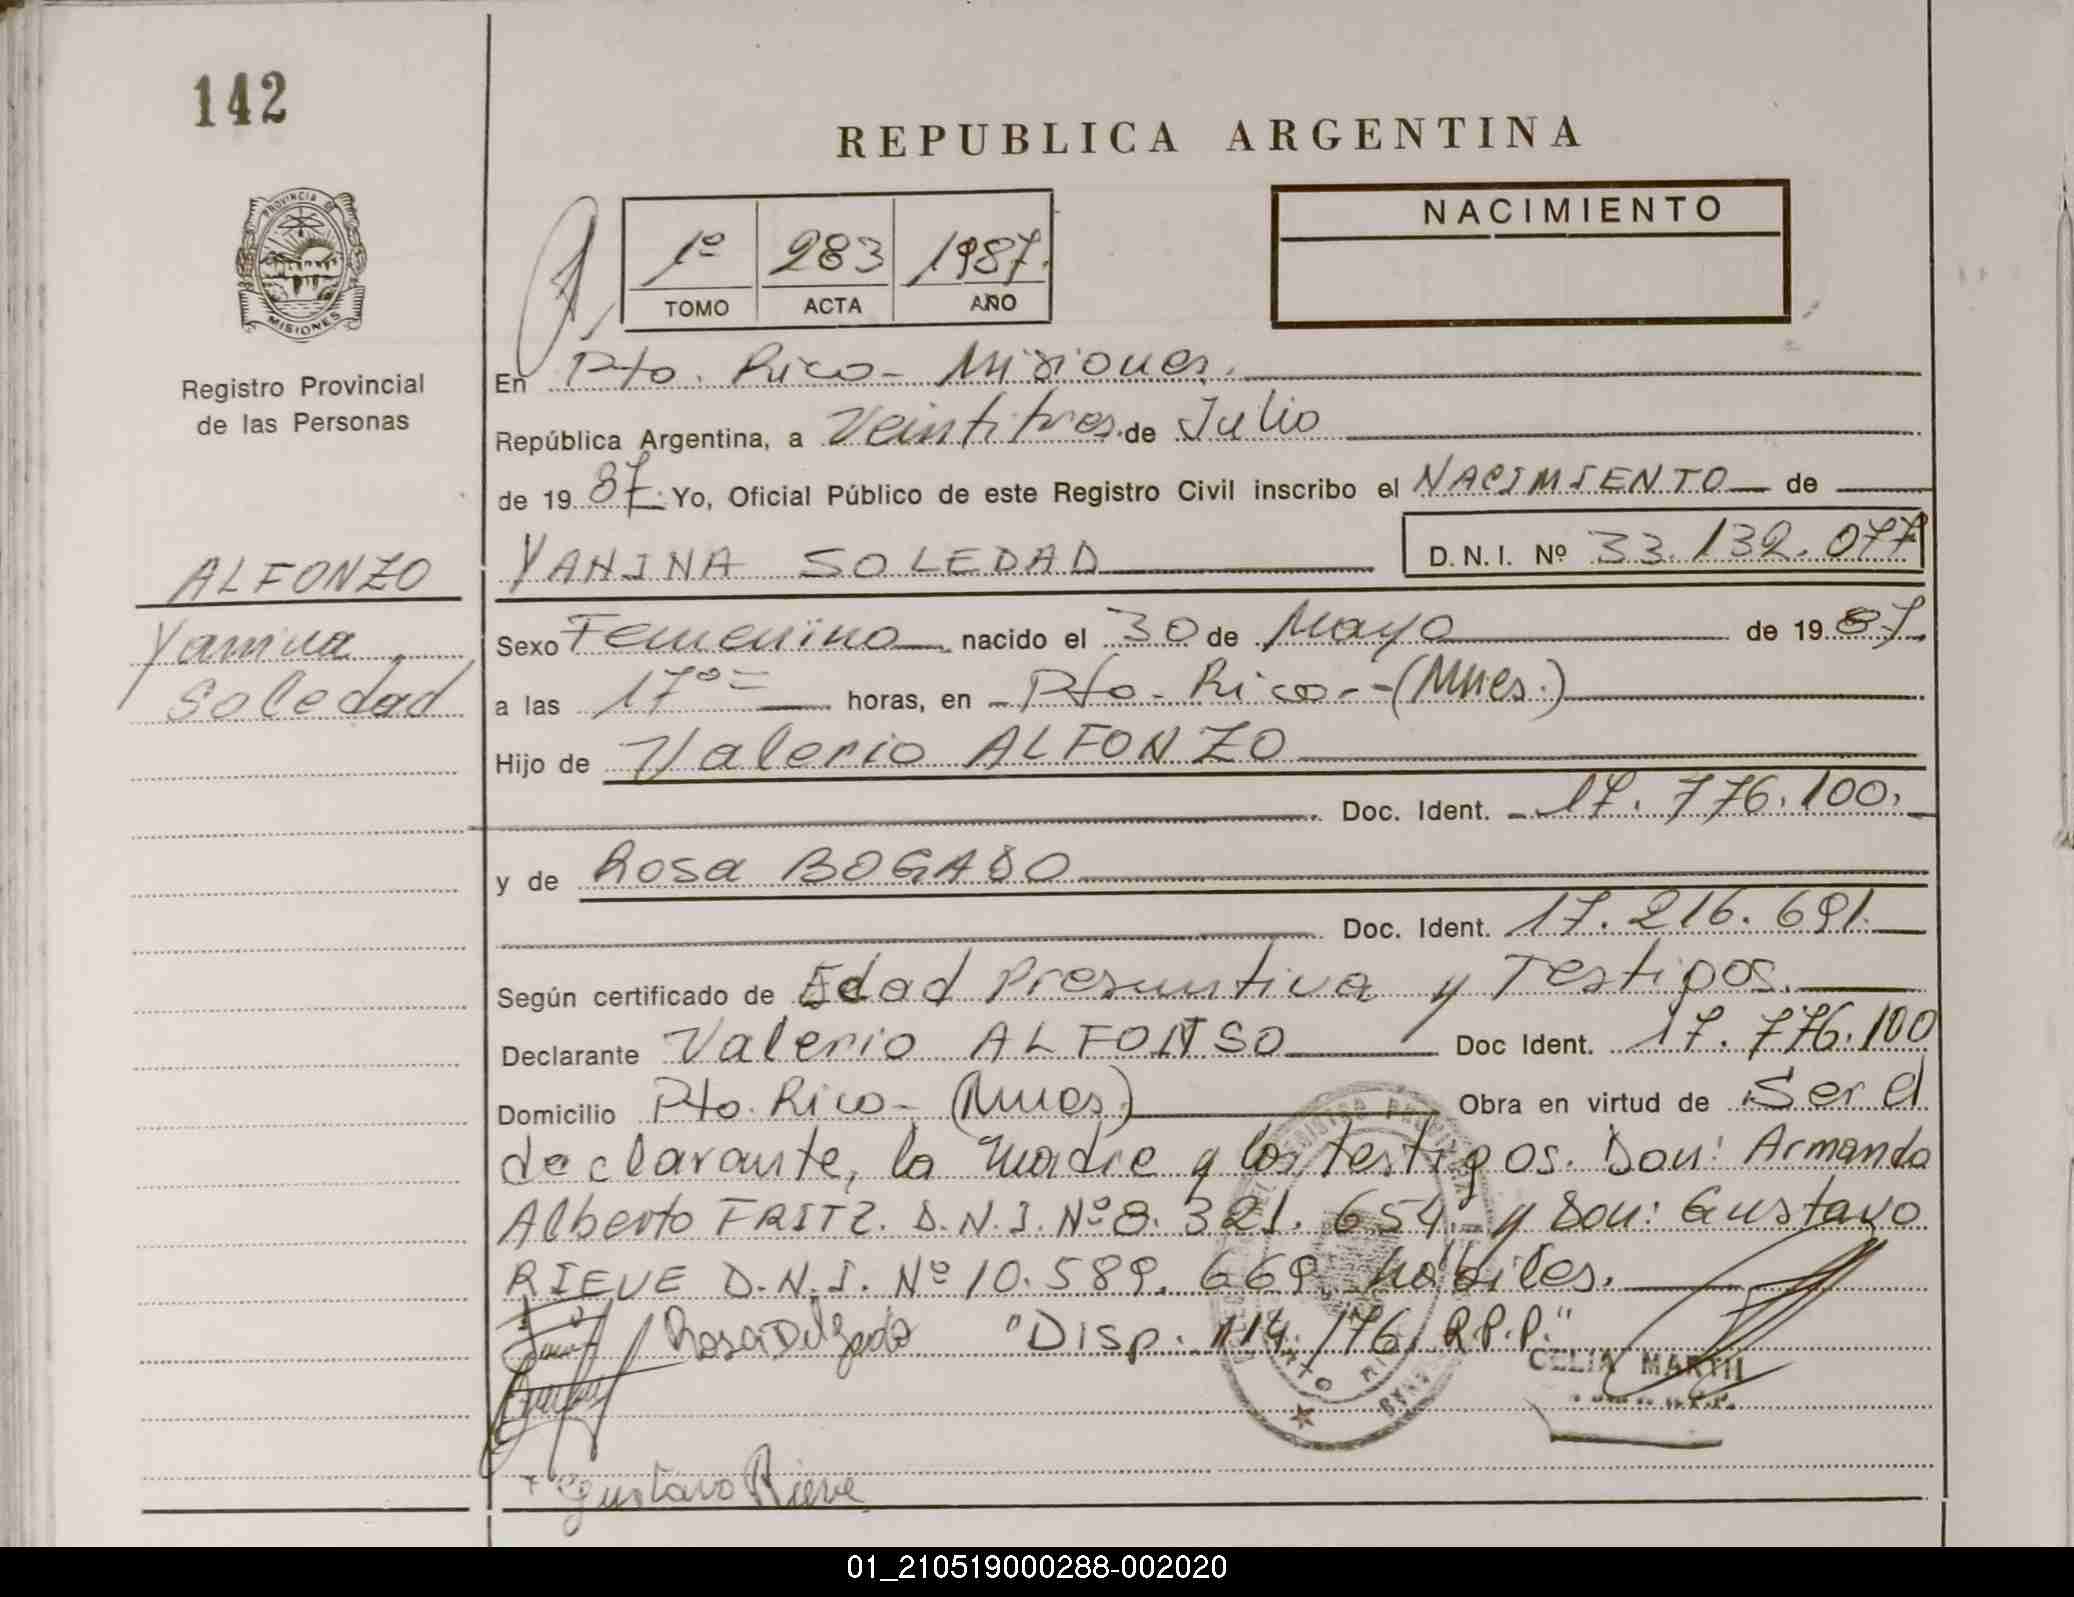 142
REPUBLICA ARGENTINA
PROVINCIA DE
MISIONES
1º 283 1987.
TOMO ACTA AÑO
NACIMIENTO
Registro Provincial
de las Personas
En Pto. Rico - Misiones.
República Argentina, a Veintitres de Julio
de 19 87. Yo, Oficial Público de este Registro Civil inscribo el NACIMIENTO de
YANINA SOLEDAD D.N.I. Nº 33.132.077
ALFONZO
Yanina
Soledad
Sexo Femenino nacido el 30 de Mayo de 19 87.
a las 17º= horas, en - Pto - Rico - (Mnes.)
Hijo de Valerio ALFONZO
Doc. Ident. 17.776.100.
y de Rosa BOGADO
Doc. Ident. 17.216.691.
Según certificado de Edad Presuntiva y Testigos.
Declarante Valerio ALFONSO Doc Ident. 17.776.100
Domicilio Pto. Rico - (Mnes) Obra en virtud de Ser el
declarante, la madre y los testigos. Don: Armando
Alberto FRITZ. D.N.I. Nº 8.321.654.- y Don: Gustavo
RIEVE D.N.I. Nº 10.589.669. habiles.
"Disp. 114/76 R.P.P."
CELIA
Gustavo Rieve
01_210519000288-002020